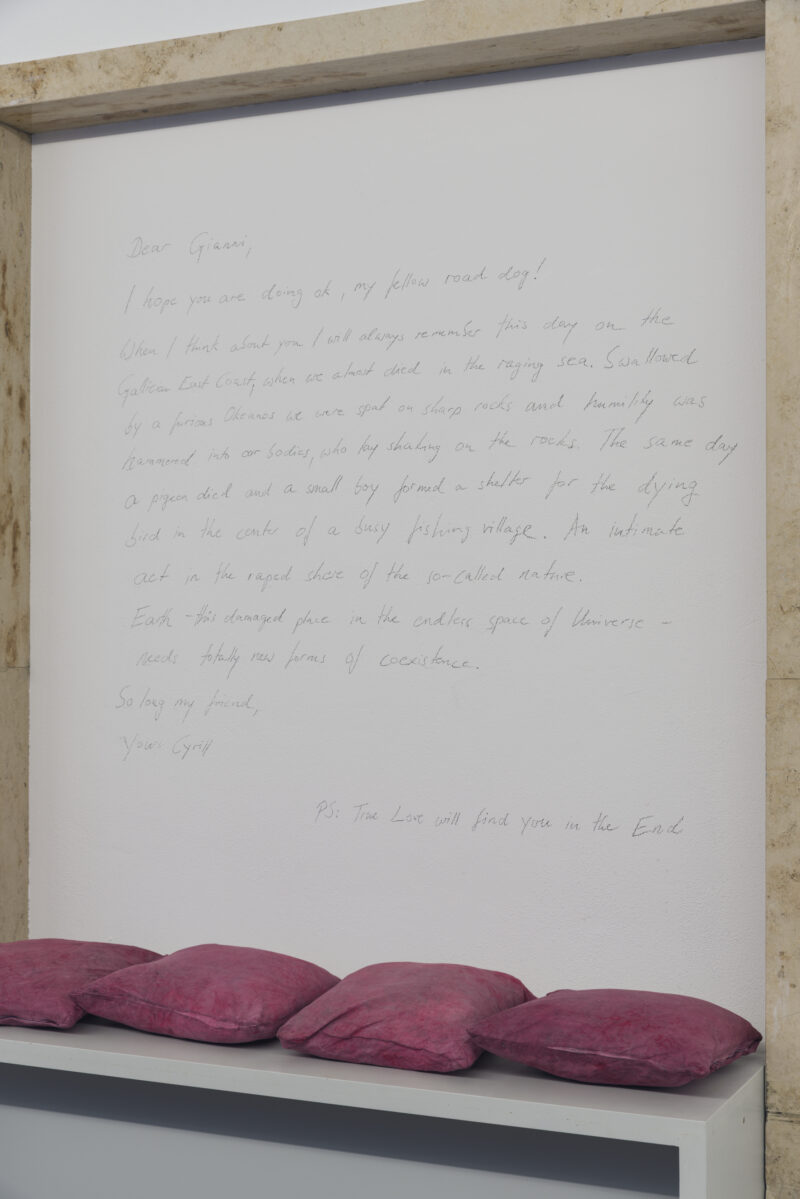 Dear Gianni,
I hope you are doing ok, my fellow road dog!
When I think about you I will always remember this day on the
Galician East Coast, when we almost died in the raging sea. Swallowed
by a furious Okeanos we were spat on sharp rocks and humility was
hammered into our bodies, who lay shaking on the rocks. The same day
a pigeon died and a small boy formed a shelter for the dying
bird in the center of a busy fishing village. An intimate
act in the raped shere of the so-called nature.
Earth - this damaged place in the endless space of Universe -
needs totally new forms of coexistence.
So long my friend,
Yours Cyrill
PS: True Love will find you in the End